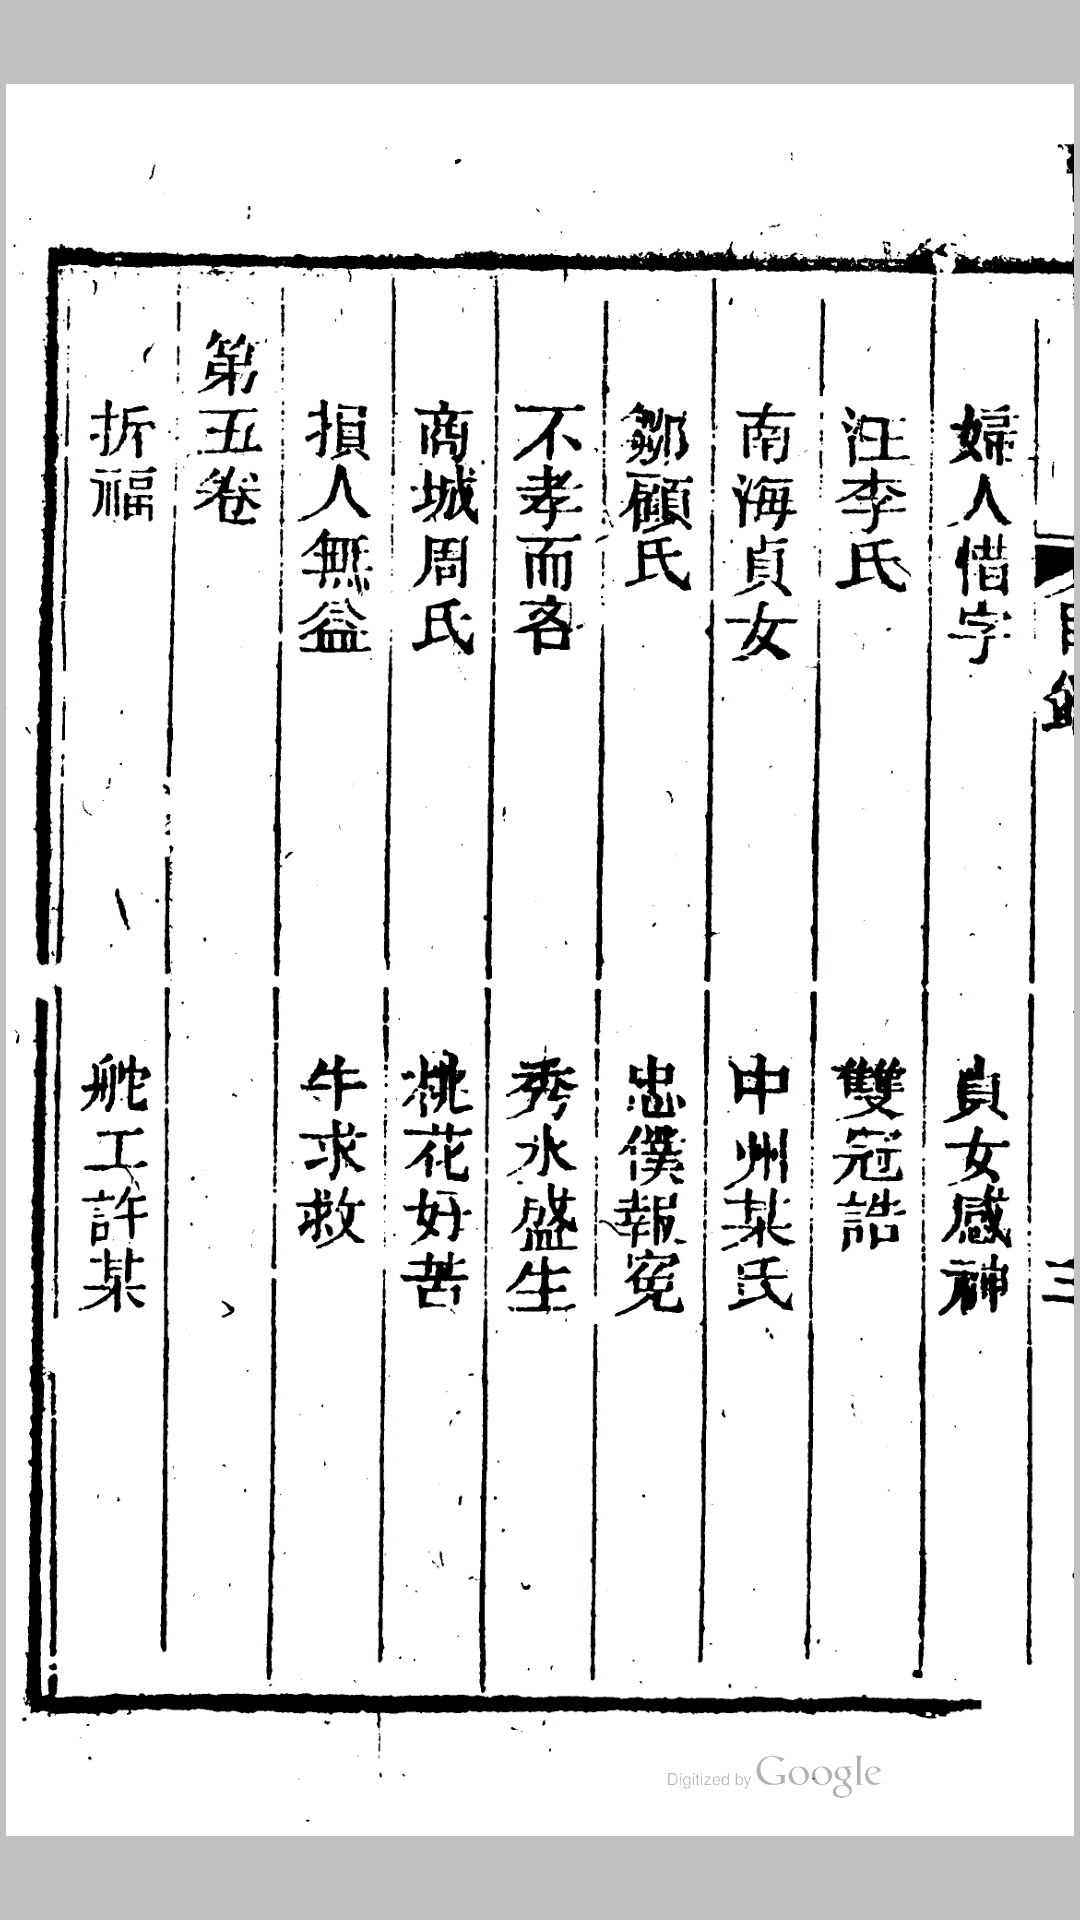 婦人惜字
貞女感神
汪李氏
雙冠誥
南海貞女
中州某氏
鄒顧氏
忠僕報冤
不孝而吝
秀水盛生
商城周氏
桃花好苦
損人無益
牛求救
第五卷
折福
舵工許某
三
Digitized by Google